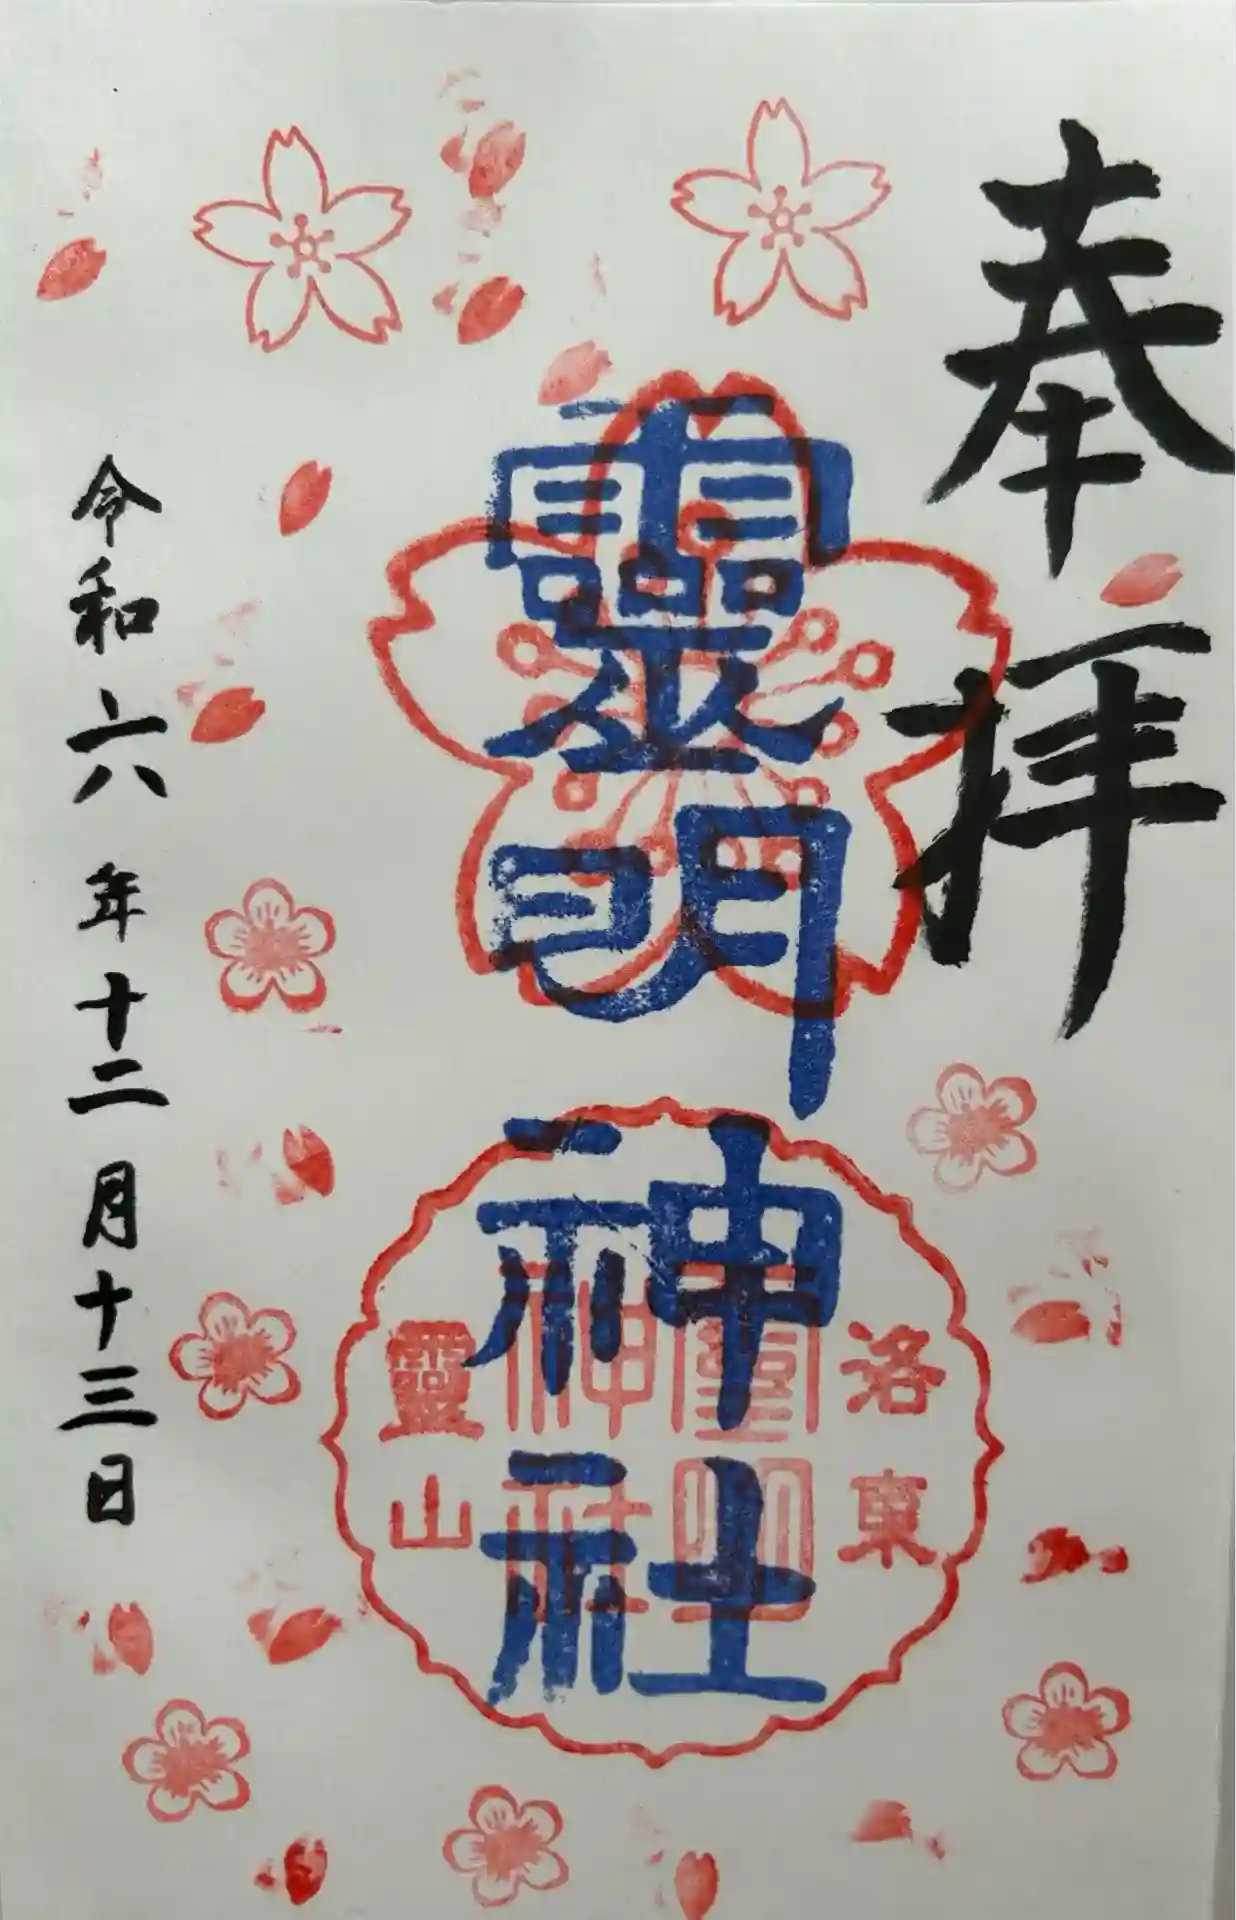 奉拝
靈明神社
洛東
靈明神社
靈山
令和六年十二月十三日